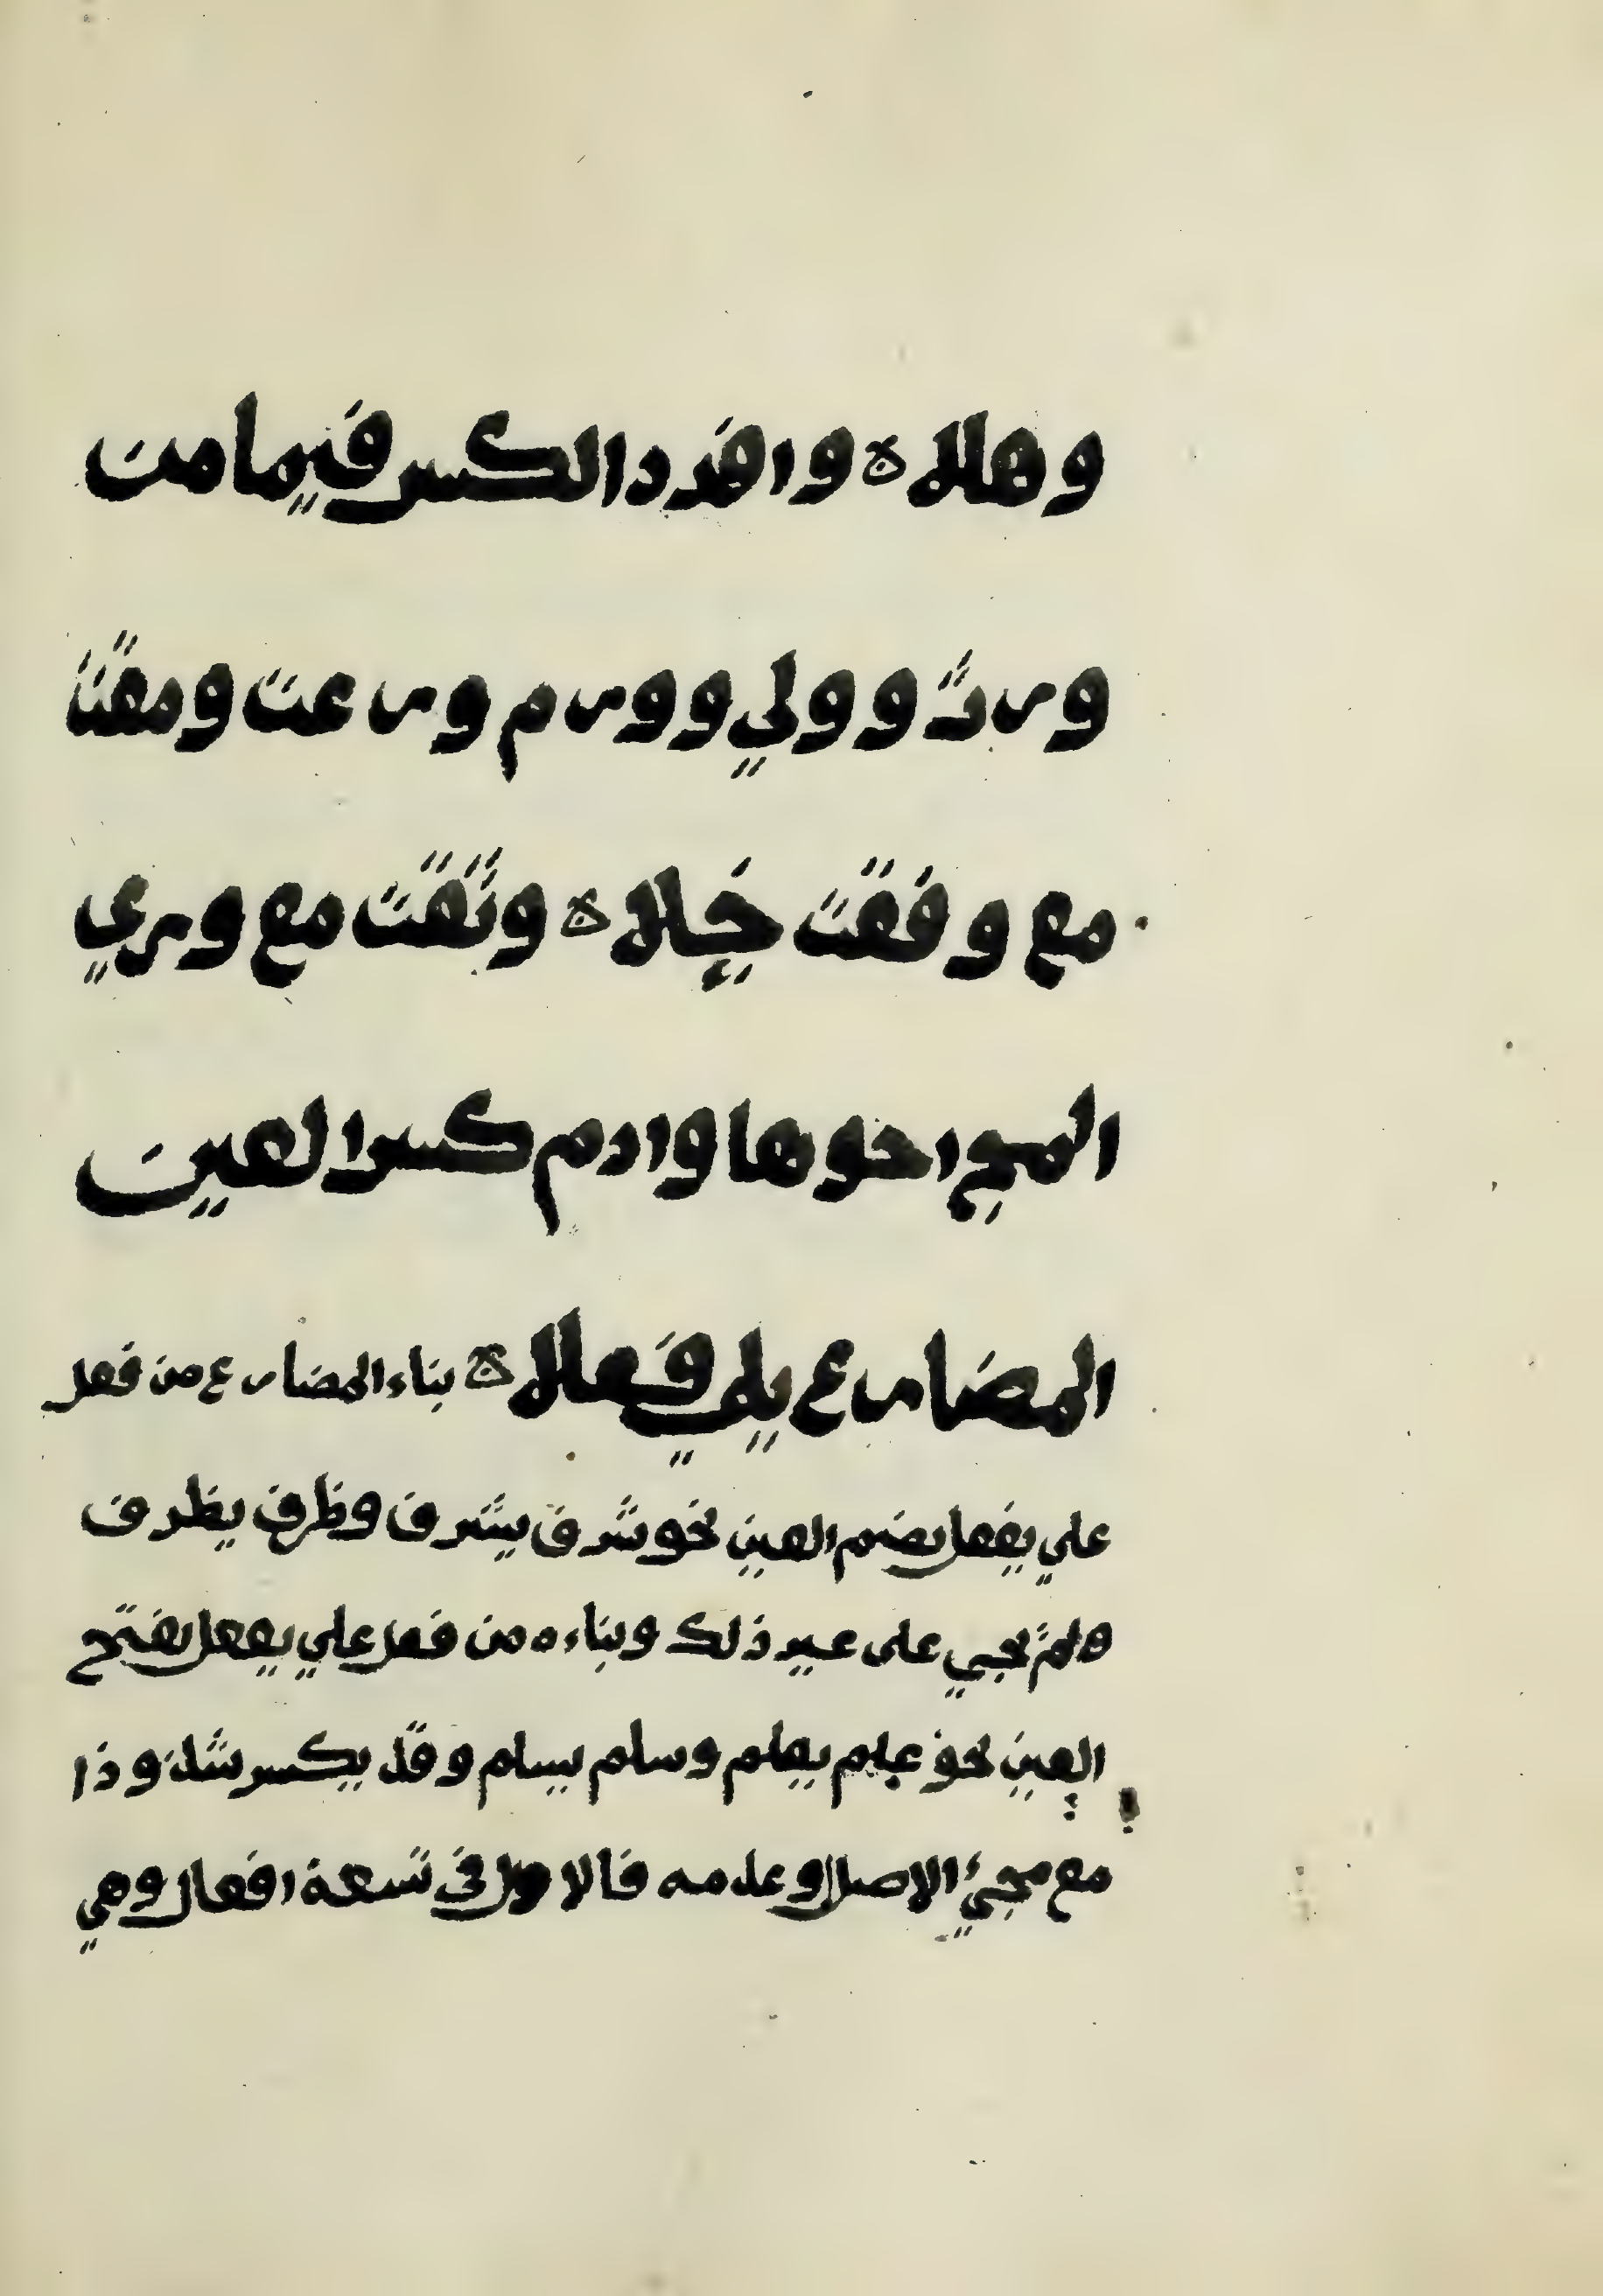 وهلا ه وافرد الكسر فيما من
ورث وولي وورم ورعت ومقتا
مع وفقت حلا ه وثقت مع وري
المخ احوها وادم كسر العين
المضارع يلي فعلا ه بناء المضارع من فعل
علي يفعل بضم العين نحو شرف يشرف وظرف يظرف
ه لم يجيي على غير ذلك وبناءه من فعل علي يفعل بفتح
العين نحو علم يعلم وسلم يسلم وقد يكسر شذوذا
مع مجيئ الاصل او عدمه فالاول في تسعة افعال وهي